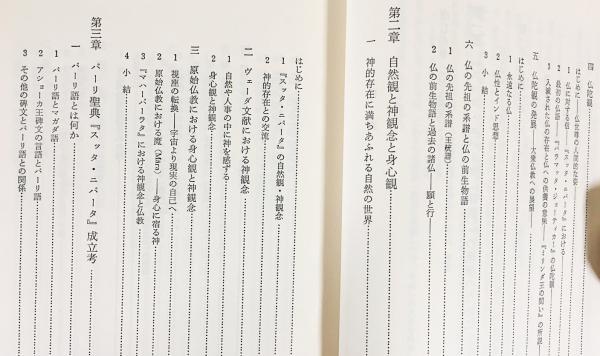 四 仏陀観
はじめに――仏世尊の人間的な姿
1 仏に対する信――『スッタ・ニパータ』における
2 最初の仏語――『パラマッタ・ジョーティカー』の仏陀観
3 入滅された仏の存在と仏への供養の意味――『ミリンダ王の問い』の所説
五 仏陀観の発展――大乗仏教への展望――
はじめに
1 永遠なる仏
2 仏性とインド思想
3 小結
六 仏の先祖の系譜と仏の前生物語
1 仏の先祖の系譜(王統譜)
2 仏の前生物語と過去の諸仏――願と行――
第二章 自然観と神観念と身心観
一 神的存在に満ちあふれる自然の世界
はじめに
1 『スッタ・ニパータ』の自然観・神観念
2 神的存在との交流
二 ヴェーダ文献における神観念
1 自然や人事の中に神を感ずる
2 身心観と神観念
三 原始仏教における身心観と神観念
1 視座の転換――宇宙より現実の自己へ
2 原始仏教における魔(Māra)――身心に宿る神
3 『マハーバーラタ』における神観念と仏教
4 小結
第三章 パーリ聖典『スッタ・ニパータ』成立考
一 パーリ語とは何か
1 パーリ語とマガダ語
2 アショーカ王碑文の言語とパーリ語
3 その他の碑文とパーリ語との関係